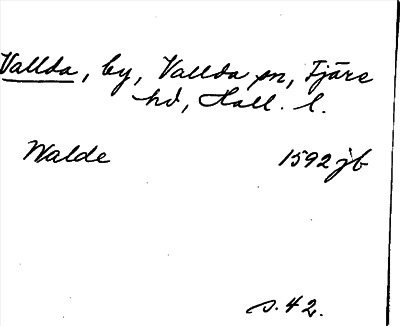 Vallda, by, Vallda sn, Fjäre
hd, Hall. l.
Walde 1592 jb
s. 42.